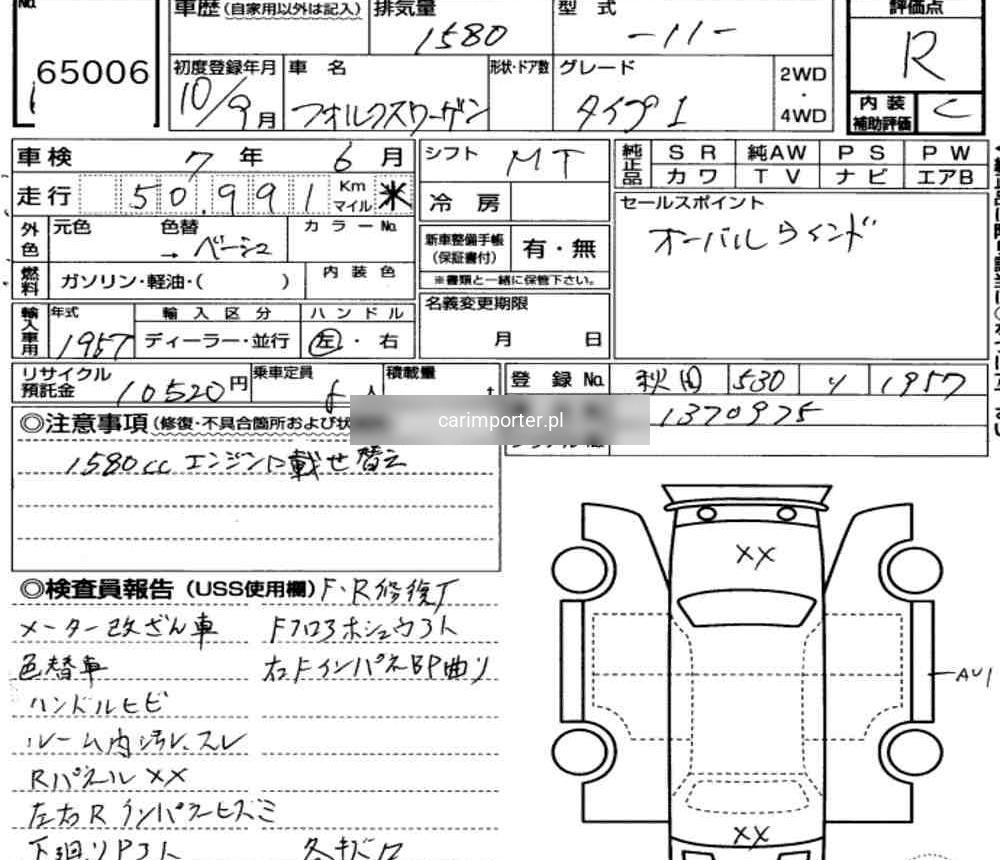 No.
65006
車歴 (自家用以外は記入)
排気量
1580
型 式
-11-
評価点
R
初度登録年月
10/9月
車 名
フォルクスワーゲン
形状・ドア数
グレード
タイプ1
2WD
・
4WD
内 装
補助評価
C
車検 7 年 6 月
走行 50,991 Km マイル ※
外色 元色 色替 カラーNo.
→ ベージュ
燃料 ガソリン・軽油・( )
内 装 色
輸入車用 年式 輸 入 区 分 ハ ン ド ル
1957 ディーラー・並行 左 ・ 右
シフト MT
冷 房
新車整備手帳
(保証書付)
有・無
※書類と一緒に保管下さい。
名義変更期限
月 日
純正品 SR 純AW PS PW
カワ TV ナビ エアB
セールスポイント
オーバルウインド
リサイクル
預託金
10520円
乗車定員
人
積載量
t
登 録 No. 秋田 530 1957
1370975
◎注意事項 (修復・不具合箇所および状
carimporter.pl
1580cc エンジンに載せ替え
◎検査員報告 (USS使用欄) F・R修復了
メーター改ざん車
Fフロアホシュウアト
色替車
右FインパネBP曲り
ハンドルヒビ
ルーム内汚レ、スレ
Rパネル××
左右Rインパネヒズミ
下廻りPアト
各キズ
XX
XX
AU1